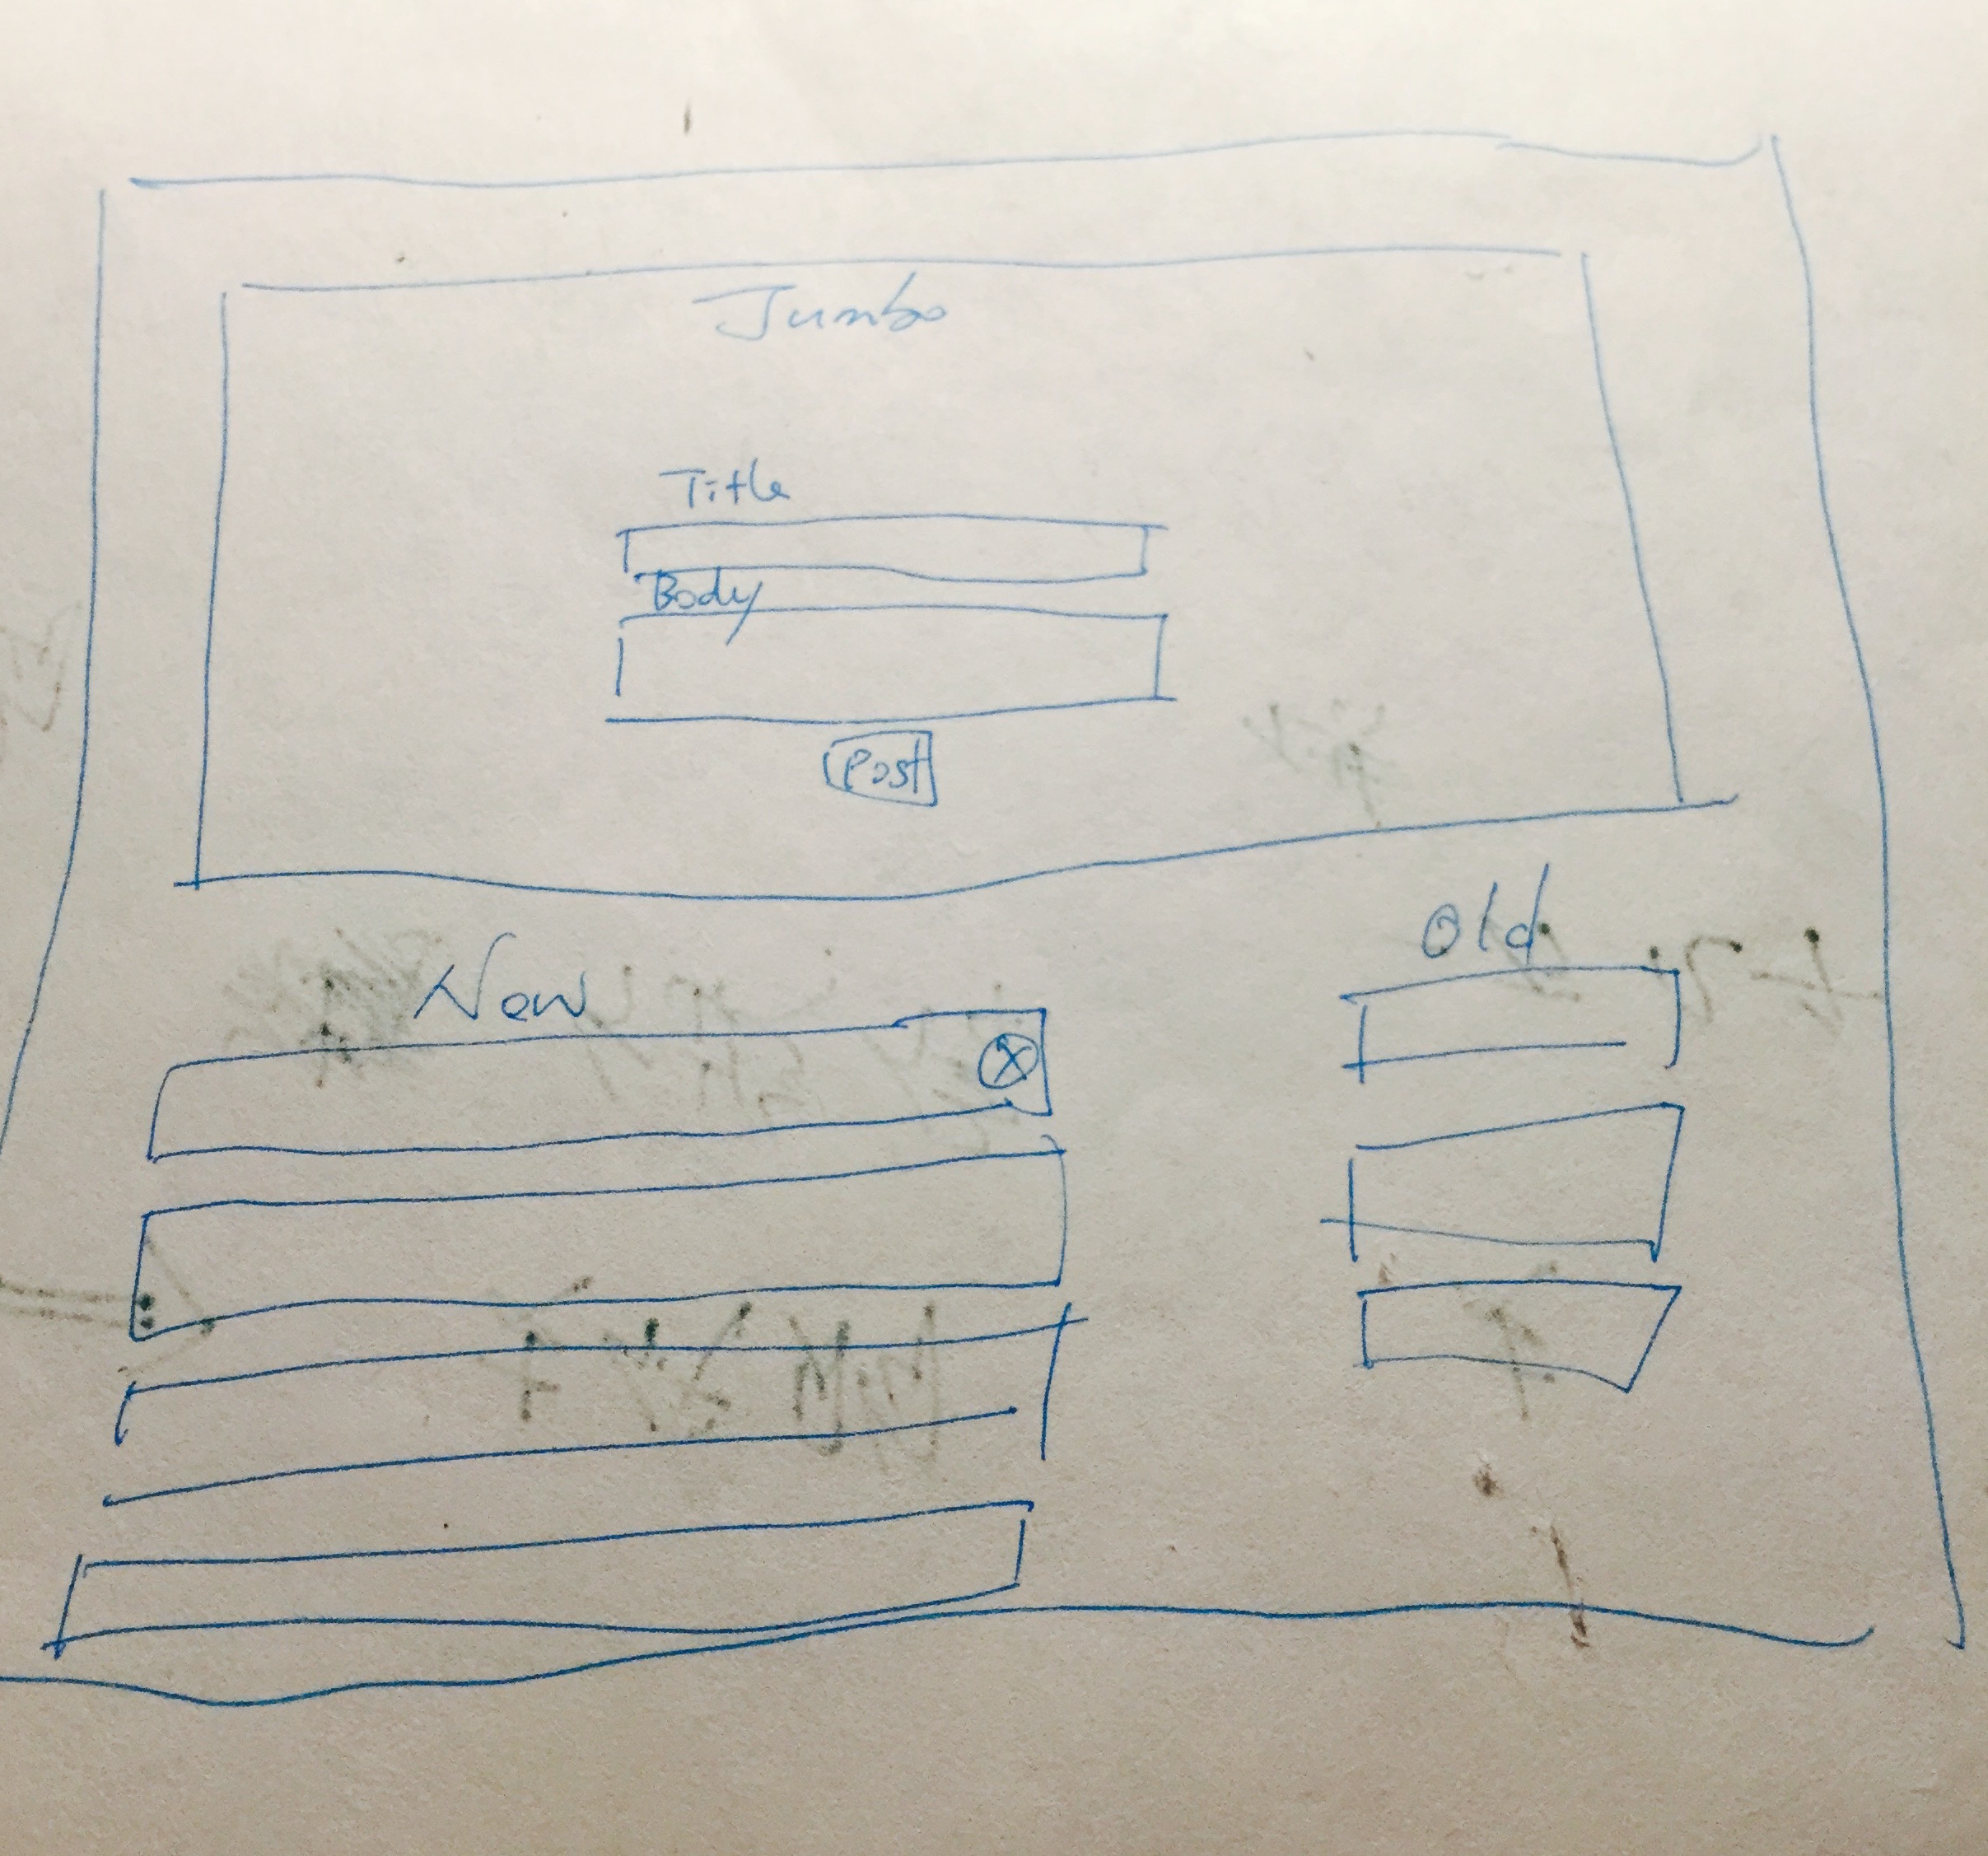 Jumbo
Title
Body
Post
New
Old